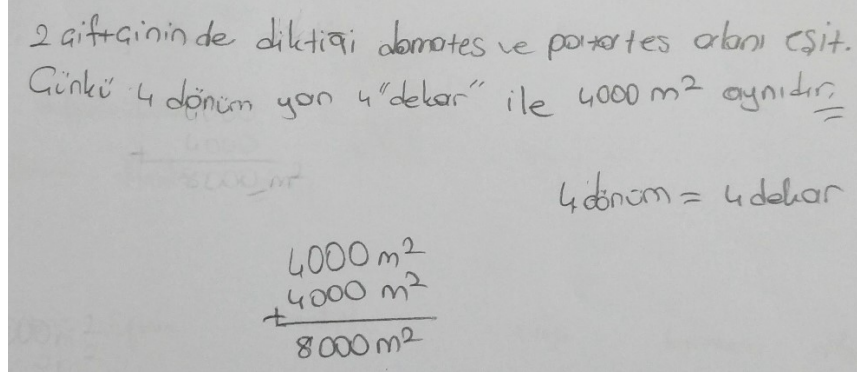 2 çiftçinin de diktiği domates ve patates alanı eşit.
Çünkü 4 dönüm yan 4 "dekar" ile 4000 m² aynıdır.
4 dönüm = 4 dekar
4000 m²
+ 4000 m²
8000 m²